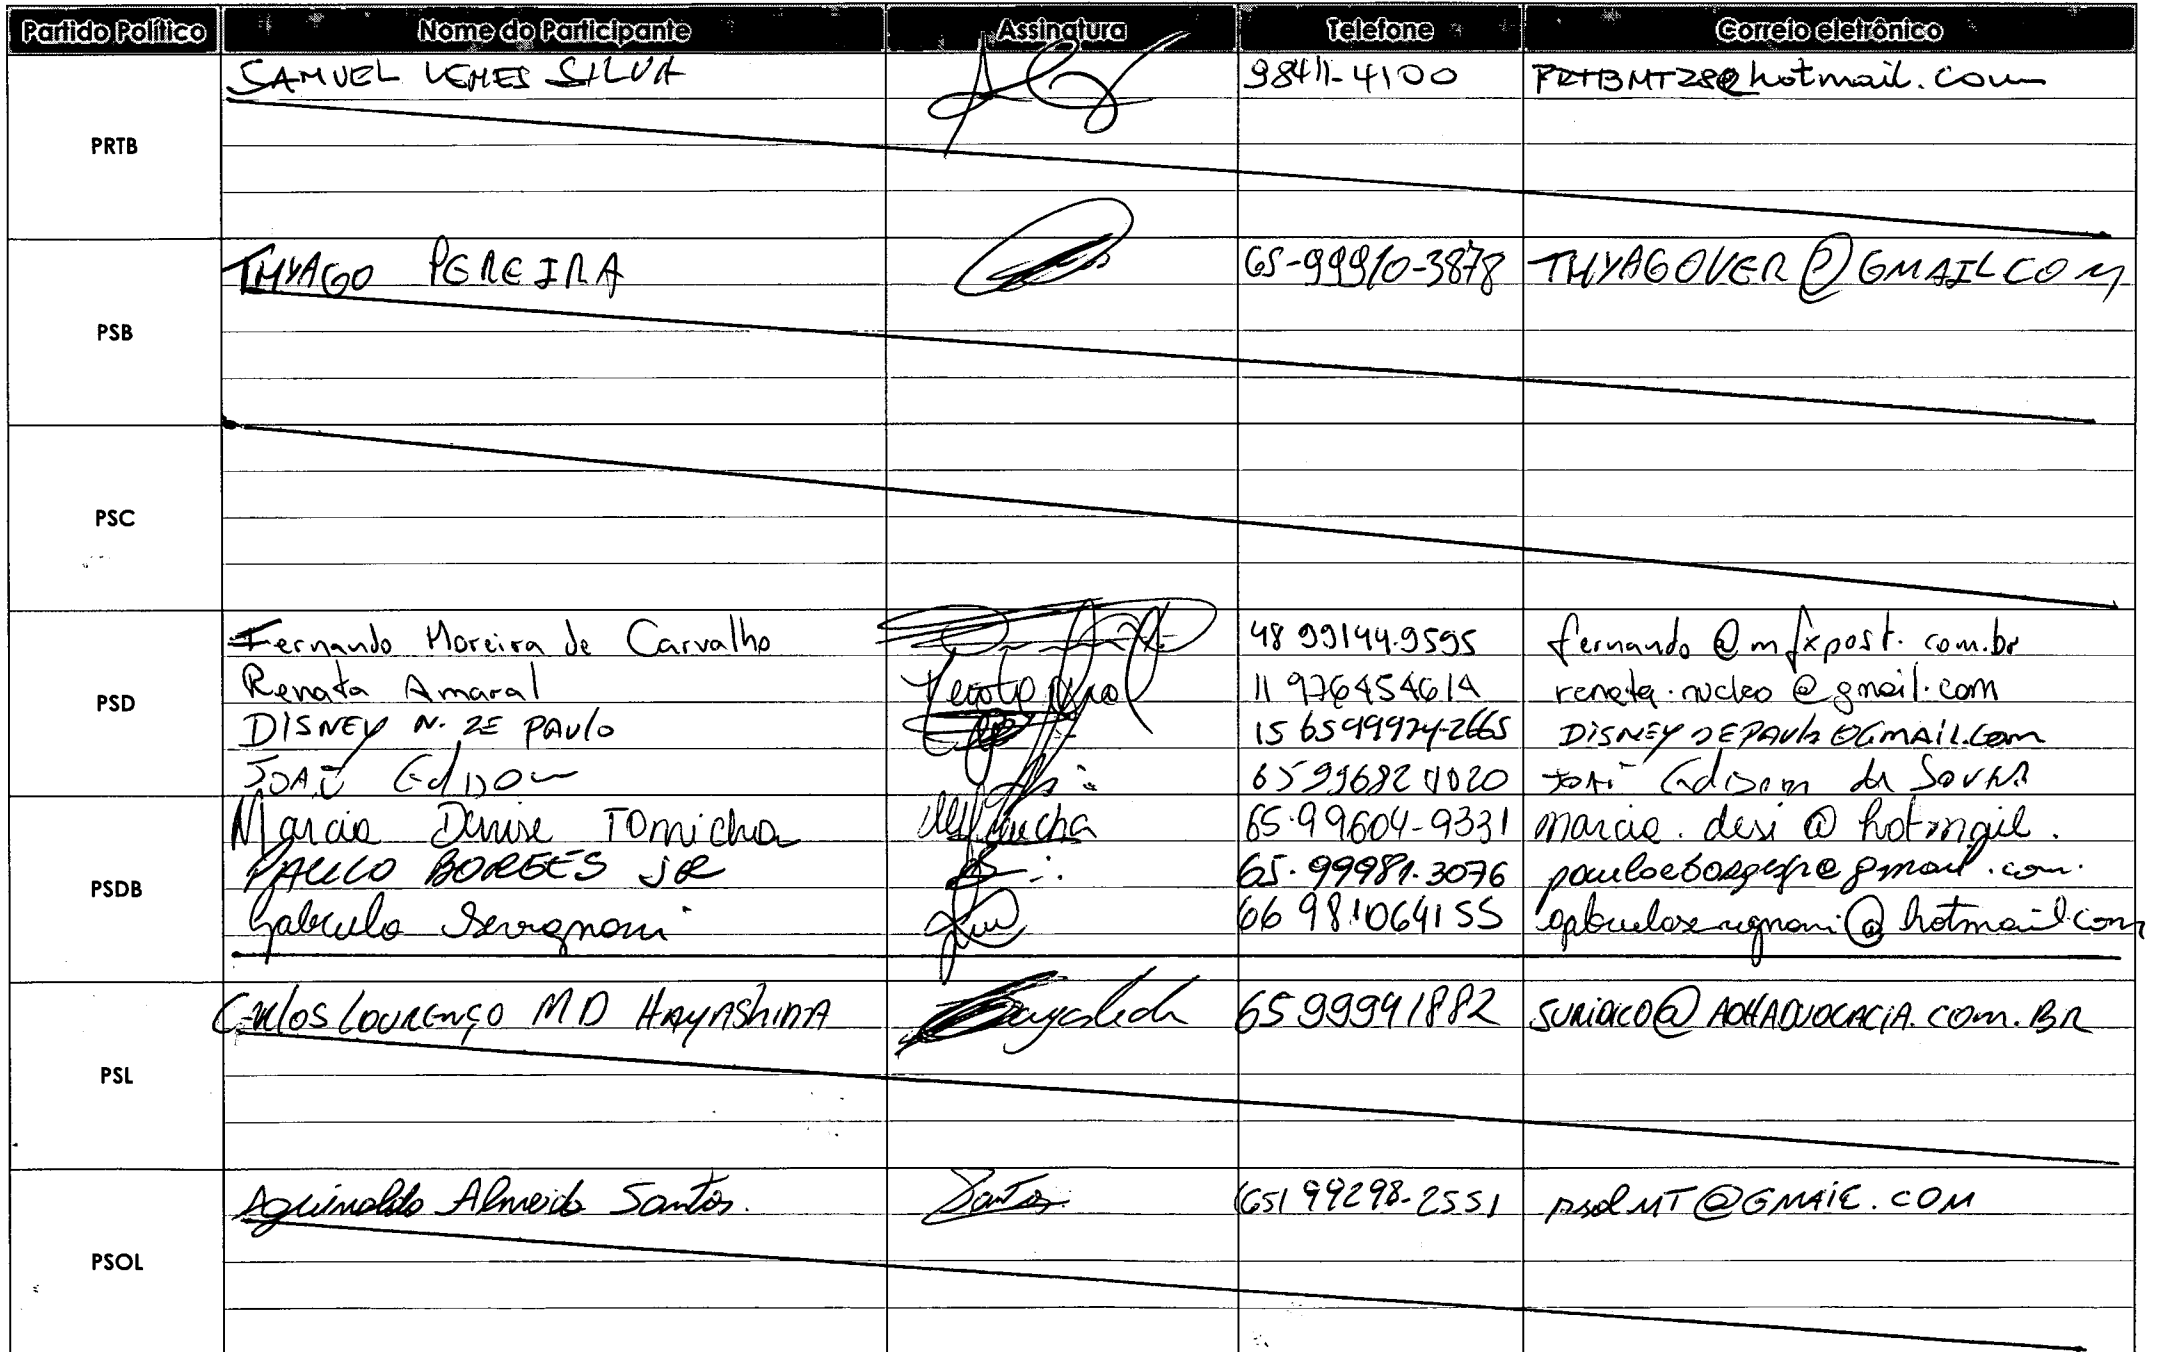 Partido Político Nome do Participante Assinatura Telefone Correio eletrônico
PRTB
SAMUEL LEMES SILVA 98411-4100 PRTBMT28@hotmail.com
PSB
THYAGO PEREIRA 65-99910-3878 THYAGOVER@GMAILCOM
PSC
PSD
Fernando Moreira de Carvalho 48 99144.9595 fernando@mfxpost.com.br
Renata Amaral 11 976454614 renata.nucleo@gmail.com
DISNEY N. DE PAULO DISNEYDEPAULO@GMAIL.com
JOAÕ Edison JOAÕ Edison de Souza
PSDB
Marcia Denise Tomicha 65.99604-9331 marcia.desi@hotmail.
PAULO BORGES JR 65.99981.3076
Gabriela Sevignani 66 981064155 hotmail.com
PSL
Carlos LOURENÇO M D HAYASHIDA 65 99941882 JURIDICO@ADHADVOCACIA.COM.BR
PSOL
Aguinaldo Almeida Santos. Santos (65) 99298-2551 psolMT@GMAIL.COM